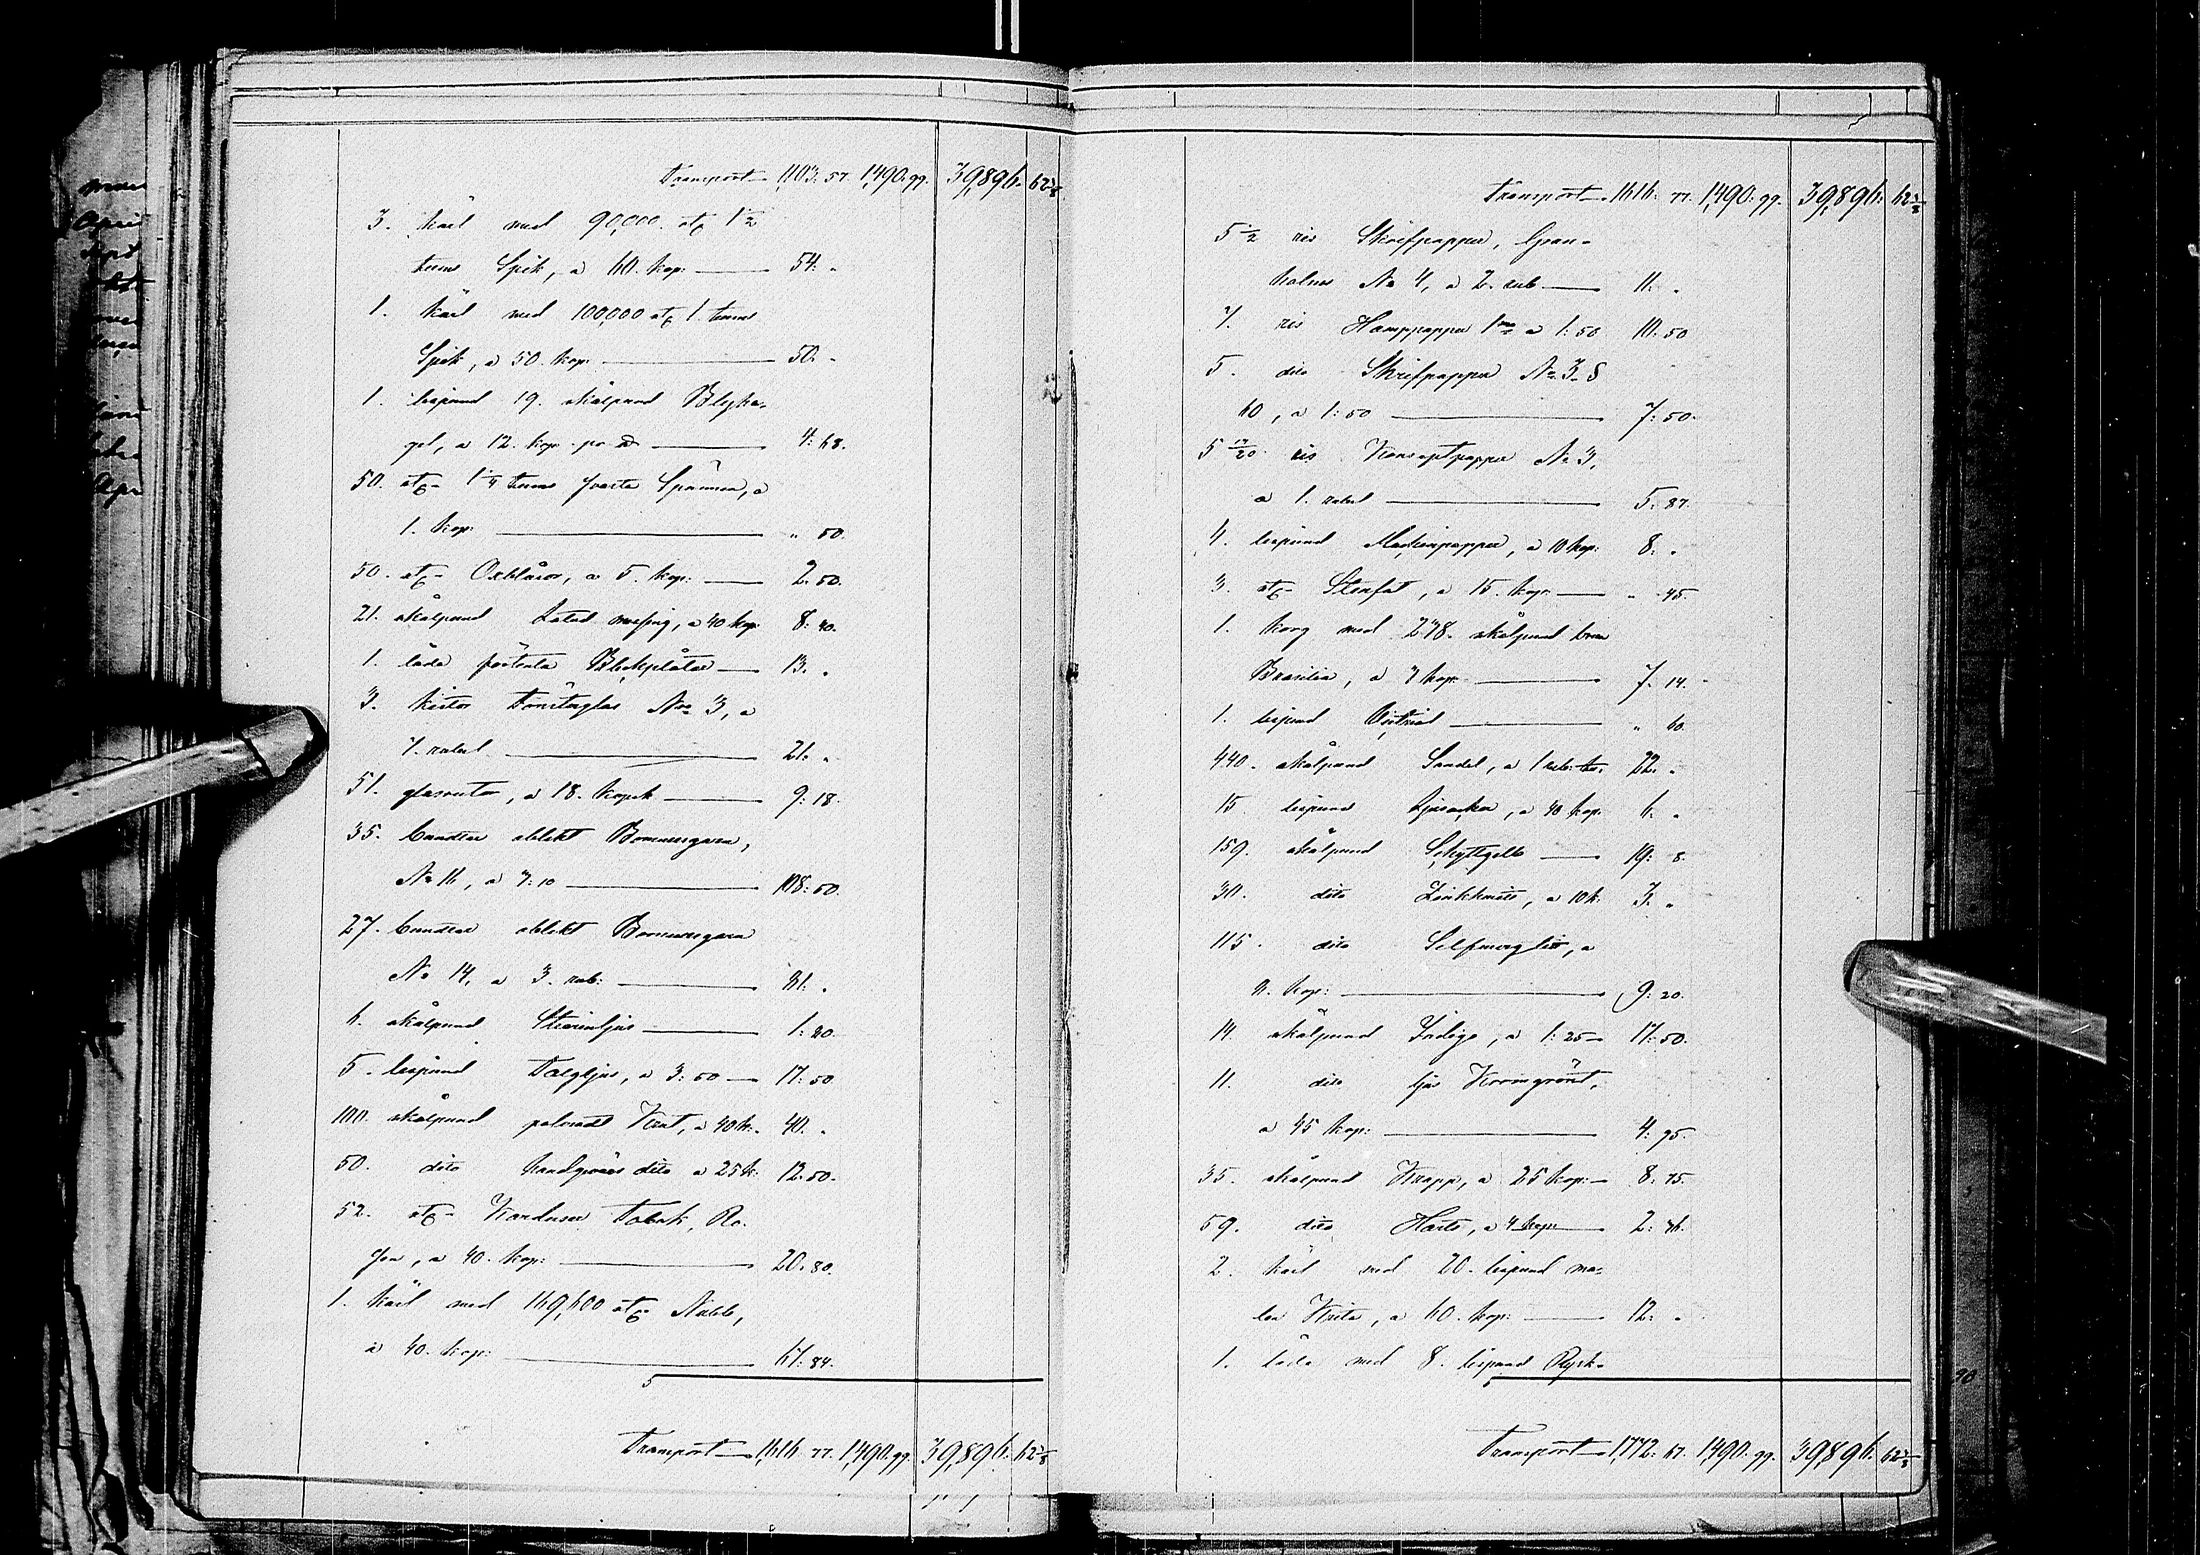 Transport 1,103. 57. 1,490. 99. 39,896. 62 5/8
3. kärl med 90,000. st. 1 1/2
tums Spik, a 60. kop. 54. "
1. kärl med 100,000 st. 1. tums
Spik, a 50. kop. 50. "
1. lispund 19. skålpund Blyha-
gel, a 12. kop. pr 4: 68.
50. st. 1 1/4 tums Spännen, a
1. kop. " 50.
50. st. Oxblåsor, a 5. kop. 2. 50.
21. skålpund Latad mässing, a 40 kop. 8: 40.
1. låda förtenta Bleckplåtar 13. "
3. kistor Fönsterglas No 3, a
7. rubel 21. "
51. glasrutor, a 18. kopek 9: 18.
35. bundtar oblekt Bomullsgarn,
No 16, a 3: 10 108: 50.
27. bundtar oblekt Bomullsgarn
No 14, a 3. rub. 81. "
6. skålpund Stearinljus 1: 80.
5. lispund Talgljus, a 3: 50 17: 50
100. skålpund Krut, a 40 k. 40. "
50. dito handgevärs dito a 25 k. 12. 50.
52. st. Karduser Tobak, Ro-
a 40. kop: 20. 80.
1. kärl med 169,600 st. Nubb,
a 40. kop: 67: 84.
Transport 1,616. 77. 1,490. 99. 39,896. 62 5/8
Transport 1616. 77. 1,490. 99. 39,896. 62 5/8
5 1/2 ris Skrifpapper, Gran-
holms No 4, a 2. rub. 11. "
7. ris Hamppapper 1ma a 1: 50 10. 50
5. dito Skrifpapper No 3. S
60, a 1: 50 7: 50.
5 17/20 ris Konceptpapper No 3,
a 1. rubel 5: 87.
4. lispund Maskinpapper, a 10 kop. 8: "
3. st. Stenfat, a 15. kop. " 45.
1. korg med 238. skålpund brun
Brasilia, a 3 kop. 7. 14.
1. lispund Victriol " 60.
440. skålpund Sandel, a 1 rub. 22. "
15 lispund Ljusocker, a 40 kop. 6. "
159. skålpund Schyttgelb 19: 8.
30. dito Zinkhvitt, a 10 k. 3. "
115. dito Silfverglitt, a
8. kop: 9: 20.
14 skålpund Indigo, a 1: 25 17: 50.
11. dito ljus Kromgrönt,
a 45 kop: 4: 95.
35. skålpund Krapp, a 25 kop: 8: 75.
59. dito Harts, a 4 kop: 2: 36.
2. kärl med 20. lispund ma-
len Krita, a 60. kop: 12: "
1. låda med 8. lispund Rysk-
Transport 1,772. 67. 1,490. 99. 39,896. 62 5/8